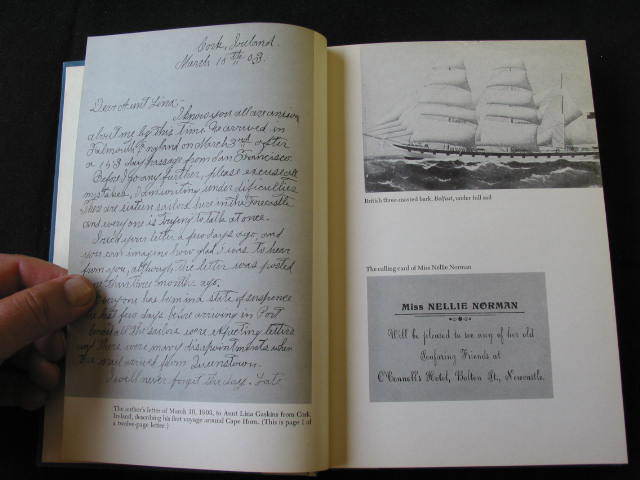 Cork, Ireland.
March 10th 03.
Dear Aunt Lina:-
I know you all are anxious
about me by this time. We arrived in
Falmouth England on March 3rd after
a 153 day passage from San Francisco.
Before I go any further, please excuse all
mistakes, I am writing under dificulties
There are sixteen sailors here in the Forecastle
and everyone is trying to talk at once.
I rec'd your letter a few days ago, and
you can imagine how glad I was to hear
from you, although the letter was posted
more than three months ago.
Everyone has been in a state of suspence
the last few days before arriving in Port
all the sailors were expecting letters
and there were many disapointments when
the mail arrived from Queenstown.
I will never forget the day. Late
The author's letter of March 10, 1903, to Aunt Lina Gaskins from Cork,
Ireland, describing his first voyage around Cape Horn. (This is page 1 of
a twelve-page letter.)
British three-masted bark, Belfast, under full sail
The calling card of Miss Nellie Norman
Miss NELLIE NORMAN
Will be pleased to see any of her old
Seafaring Friends at
O'Connell's Hotel, Bolton St., Newcastle.